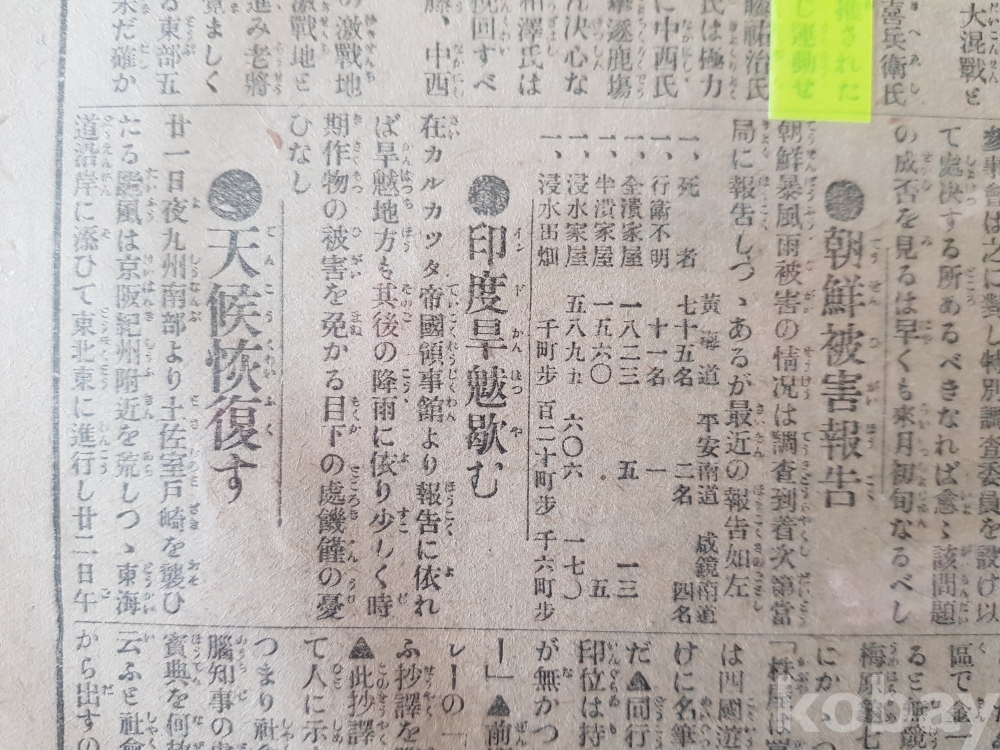 大混戰と
喜兵衛氏
推された
じ連動せ
藤祐治氏
氏は極力
に中西氏
逐鹿場
決心な
相澤氏は
挽回すべ
藤、中西
の激戰地
激戰地と
進み老將
算ましく
る東部五
未だ確か
參事會は之に對し特別調查委員を設け以
て處決する所あるべきなれば愈〻該問題
の成否を見るは早くも來月初旬なるべし
●朝鮮被害報告
朝鮮暴風雨被害の情况は調查到着次第當
局に報告しつゝあるが最近の報告如左
黃海道 平安南道 咸鏡南道
一、死者 七十五名 二名 四名
一、行衛不明 十一名 一
一、全潰家屋 一八二三 五 一三
一、半潰家屋 一五六〇 . 五
一、浸水家屋 五八九九 六〇六 一七〇
一、浸水田畑 千町步 百二十町步 千六町步
●印度旱魃歇む
在カルカツタ帝國領事館より報告に依れ
ば旱魃地方も其後の降雨に依り少しく時
期作物の被害を免かる目下の處饑饉の憂
ひなし
●天候恢復す
廿一日夜九州南部より土佐室戶崎を襲ひ
たる颱風は京阪紀州附近を荒しつゝ東海
道沿岸に添ひて東北東に進行し廿二日午
區で金一
ると
梅原龜七
にか
「株屋は
は四國遊
けに名筆
だ▲同行
印位は持
が無かつ
ー」▲前
レーの「
ふ抄譯を
▲此抄譯
て人に示
つまり社會
腦知事の
賓典を何
云ふと社會
から出すの
kobay